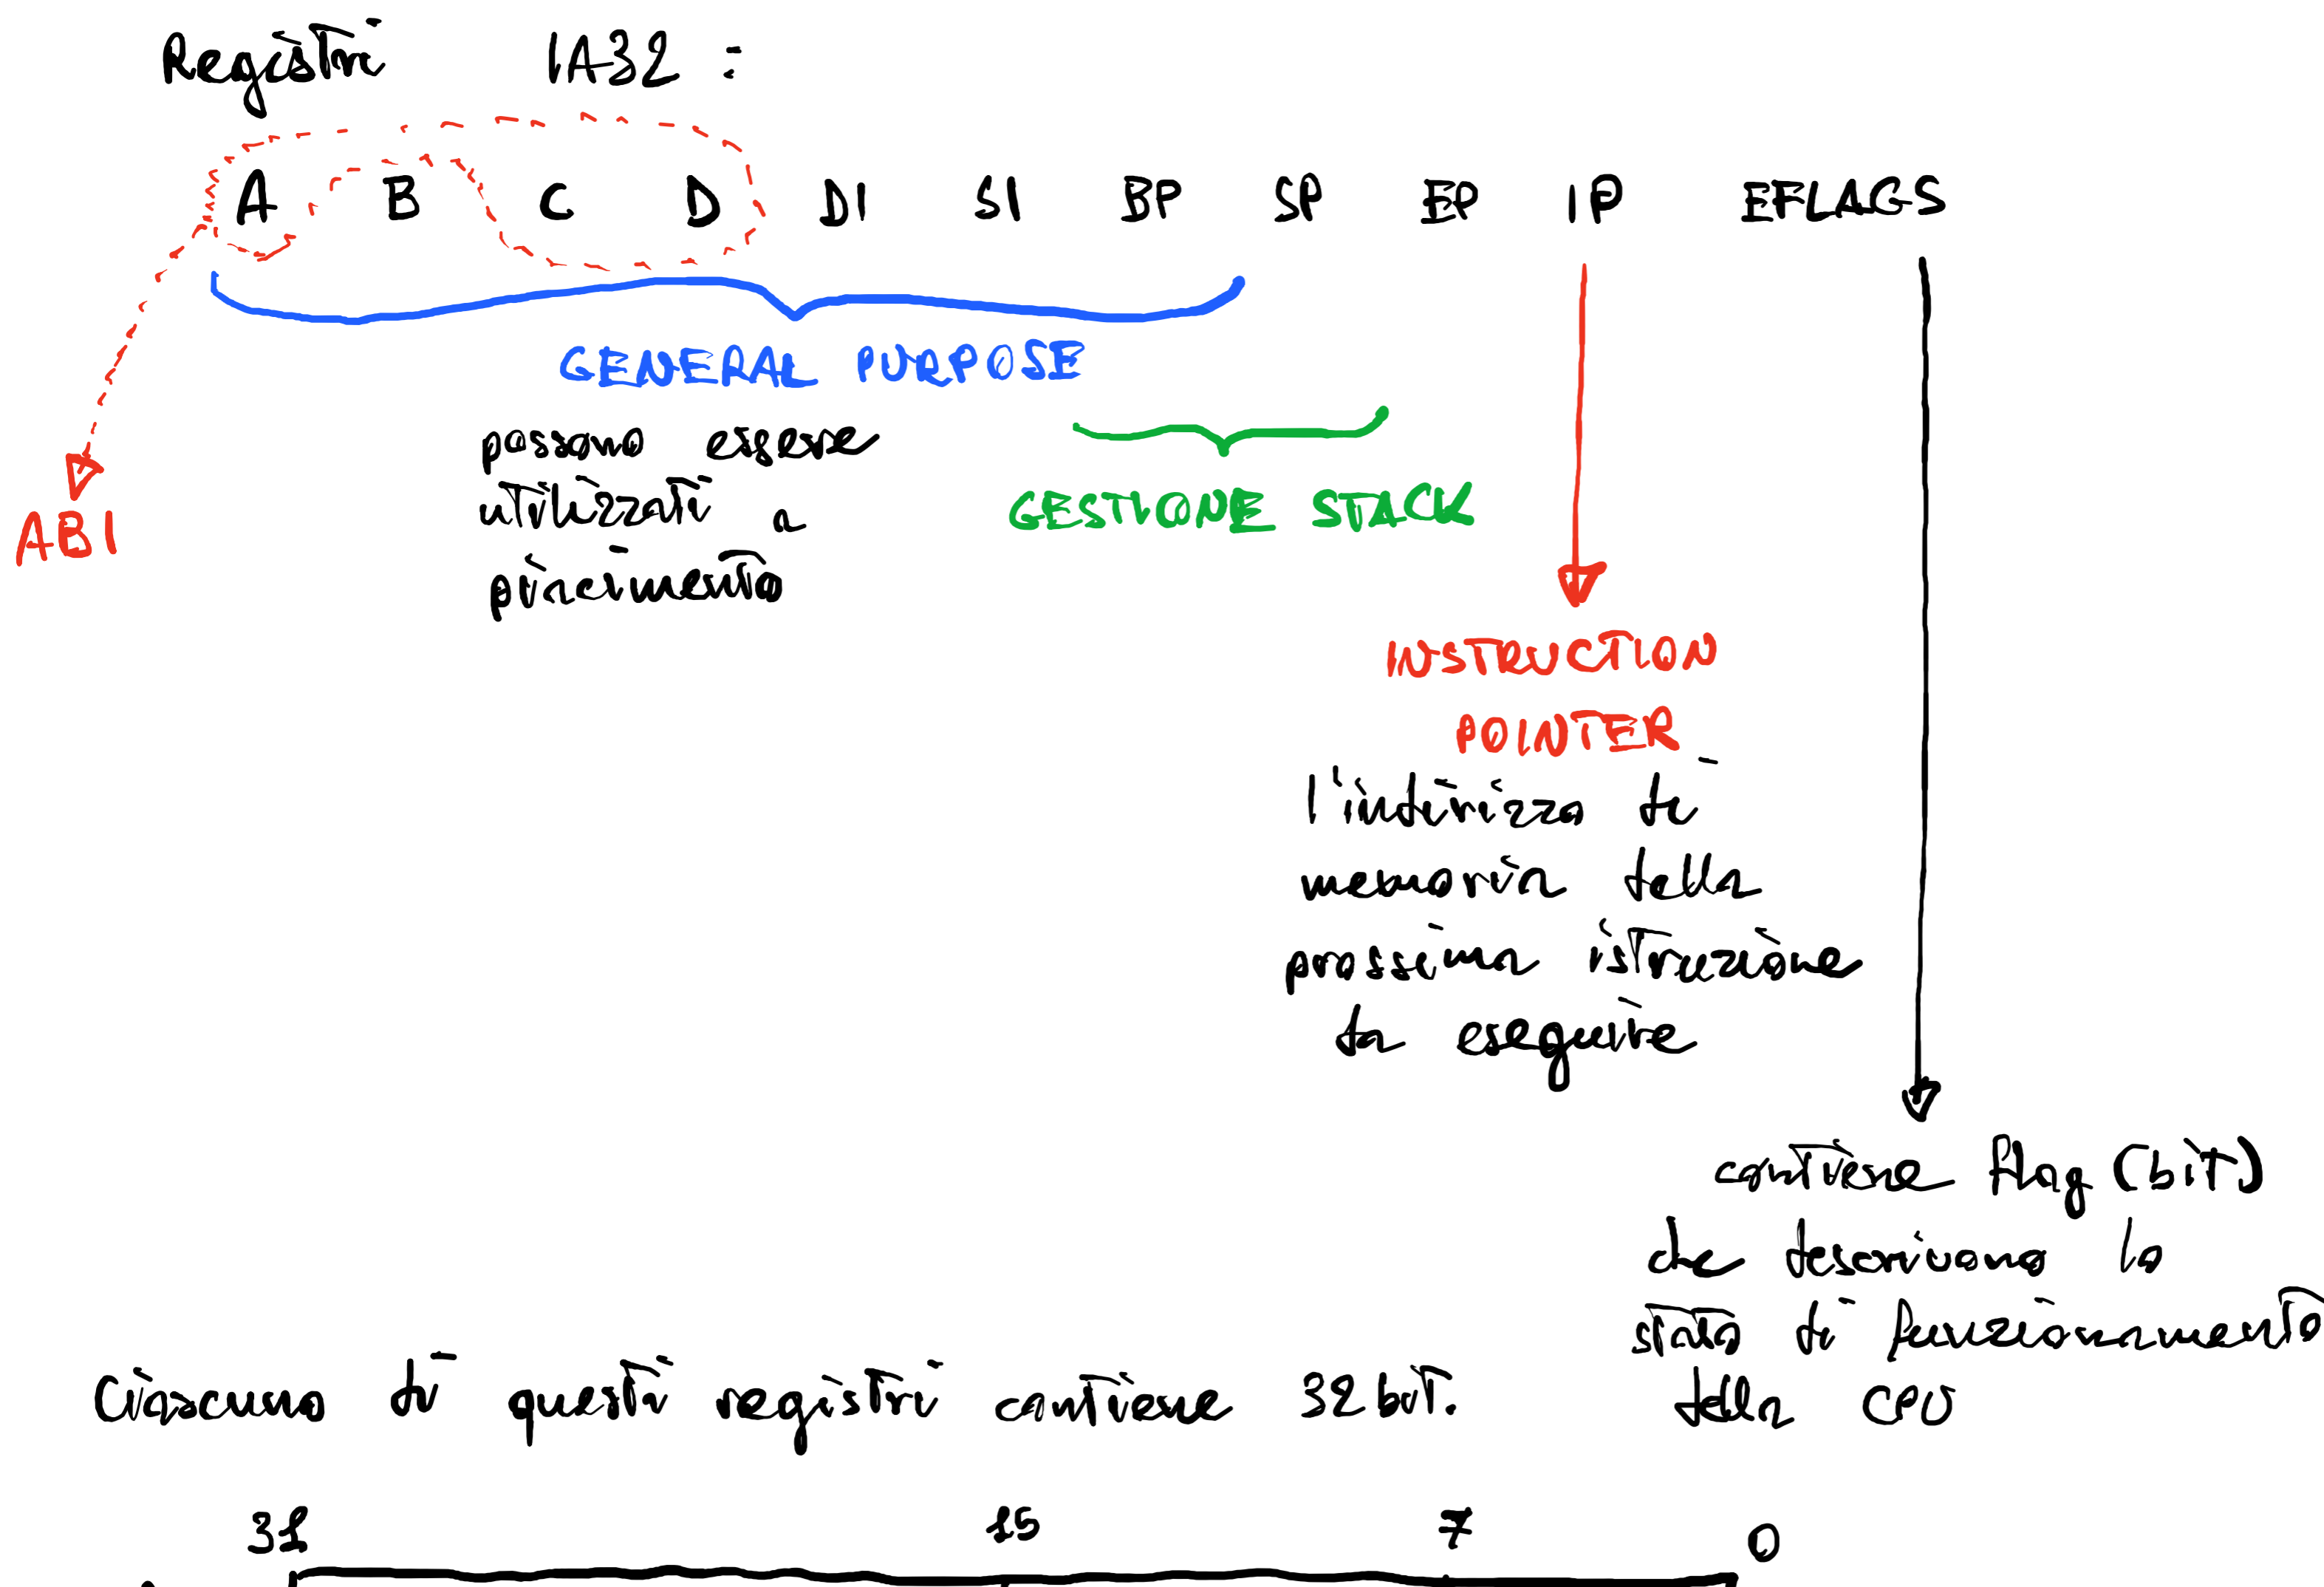 Registri IA32 :
A B C D DI SI BP SP EP IP EFLAGS
GENERAL PURPOSE
possono essere
utilizzati a
piacimento
GESTIONE STACK
ABI
INSTRUCTION
POINTER
l'indirizzo di
memoria della
prossima istruzione
da eseguire
contiene flag (bit)
che descrivono lo
stato di funzionamento
della CPU
Ciascuno di questi registri contiene 32 bit.
31 15 7 0